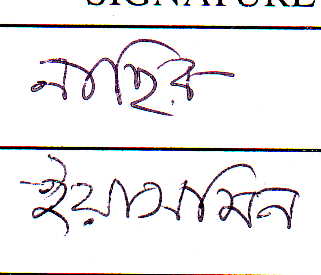 SIGNATURE
নাছির
ইয়াসমিন